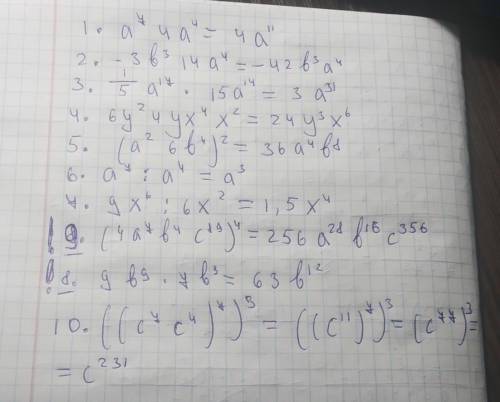 1. a⁷ 4a⁴ = 4a¹¹
2. -3b³ 14a⁴ = -42b³a⁴
3. 1/5 a¹⁷ · 15a¹⁴ = 3a³¹
4. 6y² 4yx⁴ x² = 24y³x⁶
5. (a² 6b⁴)² = 36a⁴b⁸
6. a⁷ : a⁴ = a³
7. 9x⁶ : 6x² = 1,5x⁴
! 9. (4a⁷b⁴ c⁸⁹)⁴ = 256a²⁸ b¹⁶ c³⁵⁶
! 8. 9b⁹ · 7b³ = 63b¹²
10. ((c⁷ c⁴)⁷)³ = ((c¹¹)⁷)³ = (c⁷⁷)³ =
= c²³¹